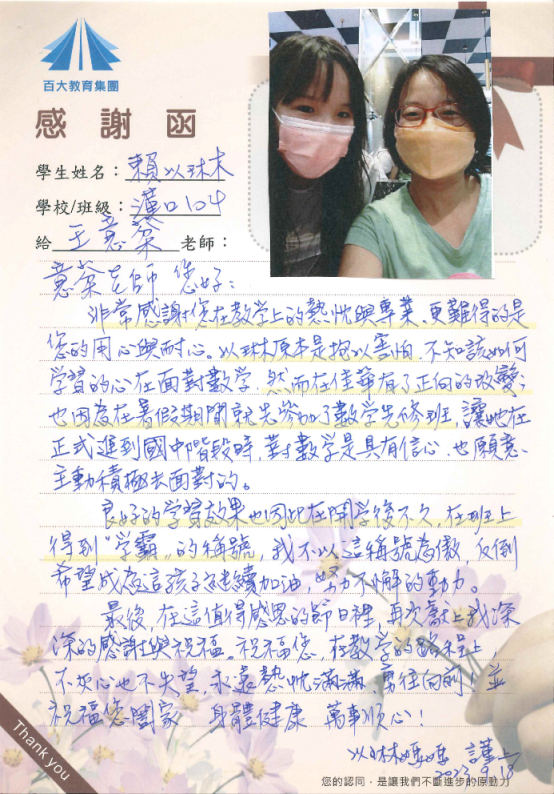 百大教育集團
感謝函
學生姓名：賴以琳
學校/班級：漢口104
給 王意棻 老師：
意棻老師 您好：
非常感謝您在教学上的熱忱與專業、更難得的是
您的用心與耐心。以琳原本是抱以害怕、不知該如何
学習的心在面對數学，然而在佳華有了正向的改變，
也因為在暑假期間就先參加了數学先修班，讓她在
正式進到國中階段時，對數学是具有信心、也願意
主動積極去面對的。
良好的学習效果也因此在開学後不久，在班上
得到"学霸"的稱號，我不以這稱號為傲，反倒
希望成為這孩子持續加油，努力不懈的動力。
最後，在這值得感恩的節日裡，再次獻上我深
深的感謝與祝福。祝福您，在教学的路程上，
不灰心也不失望，永遠熱忱滿滿、勇往向前！並
祝福您闔家 身體健康 萬事順心！
以琳媽媽 謹上
2023 9.18
Thank you
您的認同，是讓我們不斷進步的原動力